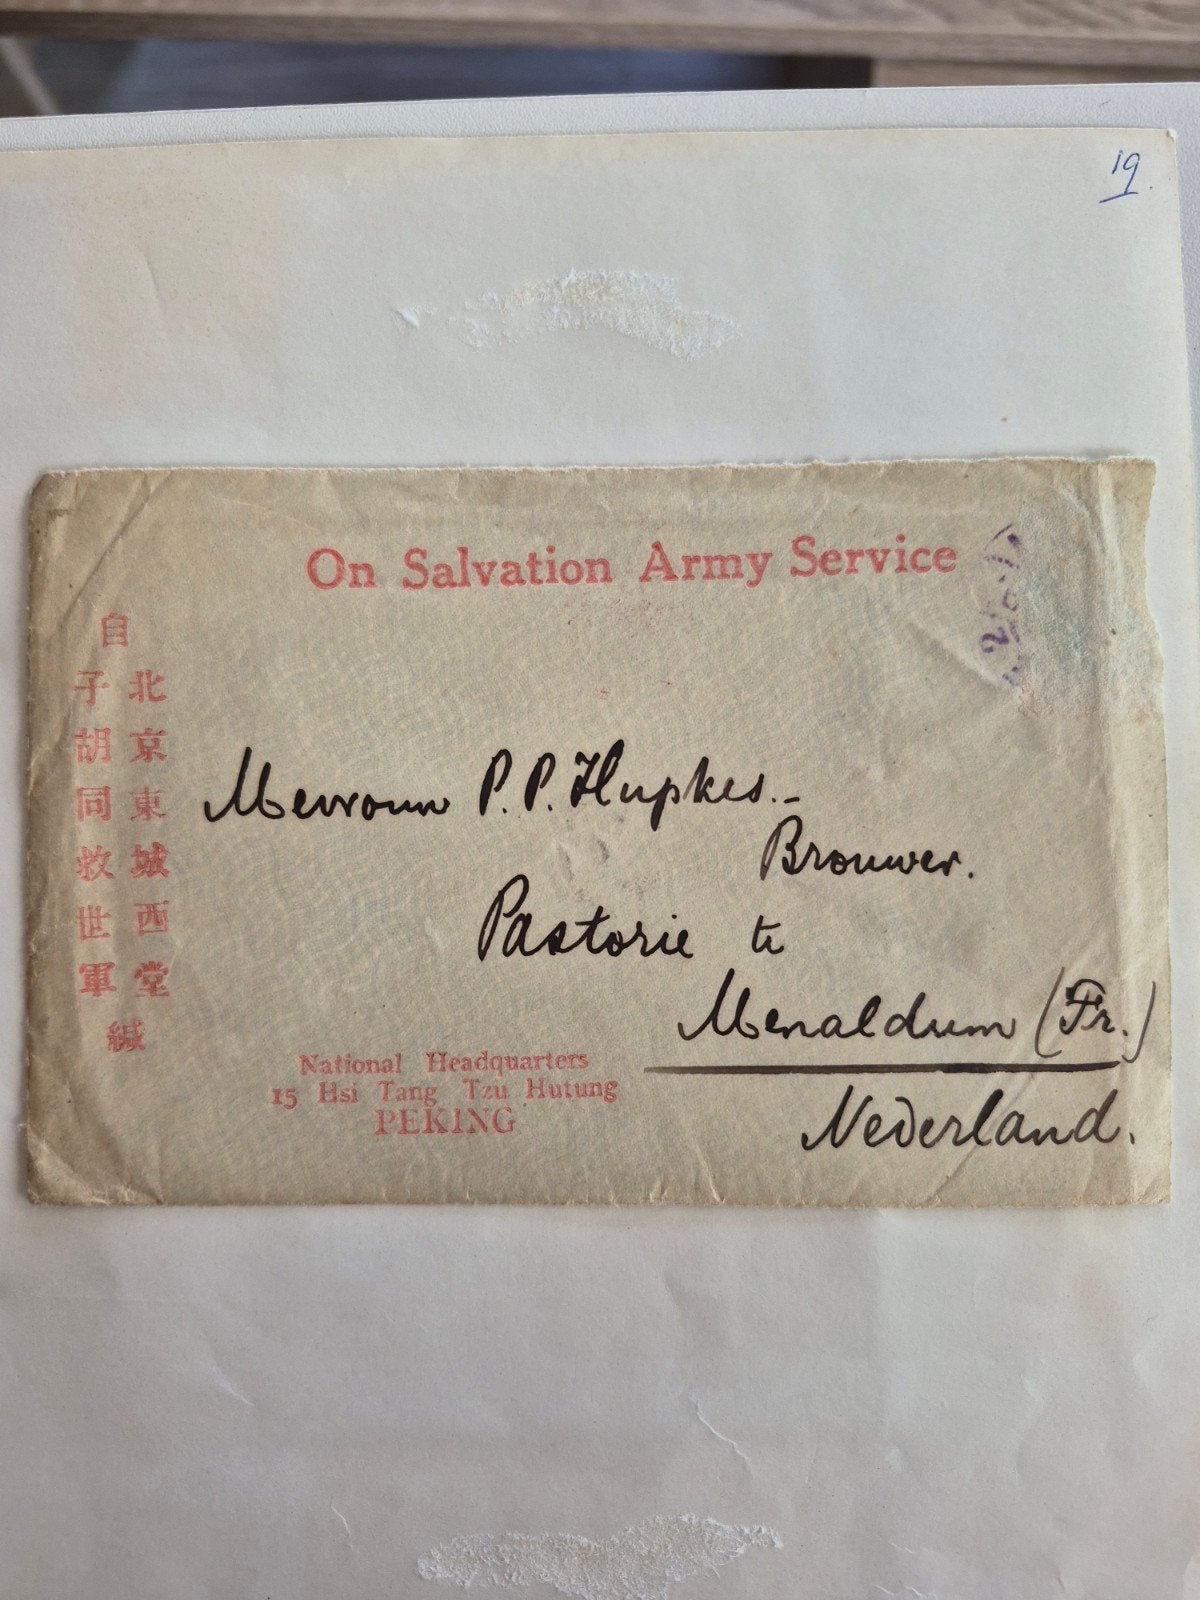 19.
On Salvation Army Service
自
北京東城西堂
子胡同救世軍
緘
Mevrouw P. P. Hupkes.-
Brouwer.
Pastorie te
Menaldum (Fr.)
Nederland.
National Headquarters
15 Hsi Tang Tzu Hutung
PEKING